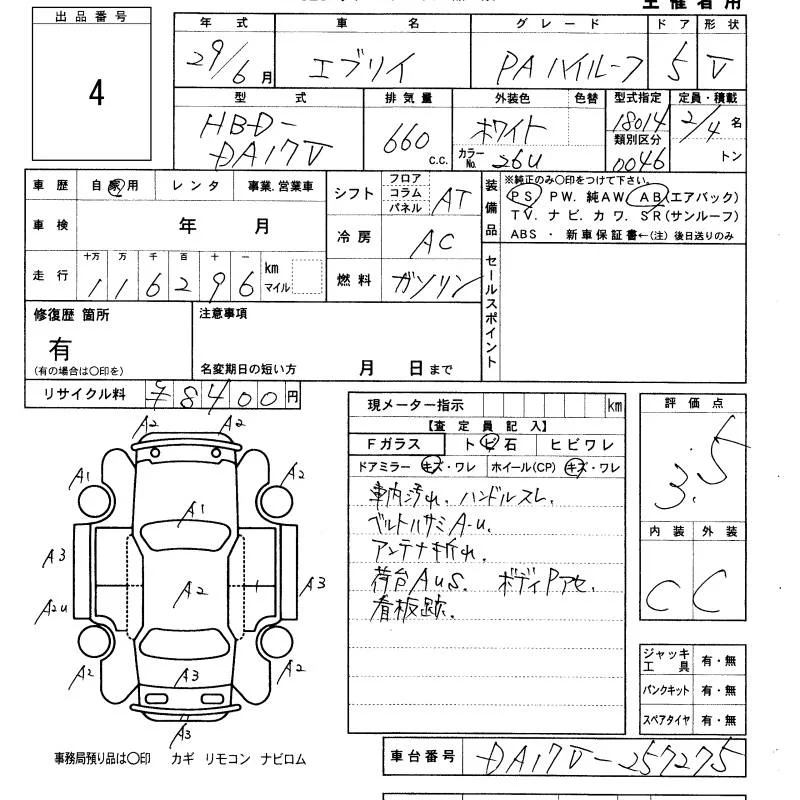 主催者用
出品番号
4
年式 車名 グレード ドア 形状
29/6月 エブリイ PAハイルーフ 5 V
型式 排気量 外装色 色替 型式指定 定員・積載
HBD-DA17V 660 c.c. ホワイト カラーNo. 26U 18014 類別区分 0046 2/4名 トン
車歴 自家用 レンタ 事業.営業車
車検 年 月
走行 十万 万 千 百 十 一 km マイル
116296
シフト フロア コラム パネル AT
冷房 AC
燃料 ガソリン
装備品
※純正のみ○印をつけて下さい。
PS PW. 純AW AB(エアバック)
TV. ナビ. カワ. SR(サンルーフ)
ABS ・ 新車保証書←(注) 後日送りのみ
セールスポイント
修復歴 箇所
有
(有の場合は○印を)
注意事項
名変期日の短い方 月 日まで
リサイクル料 ¥8400円
現メーター指示 km
【査定員記入】
Fガラス トビ石 ヒビワレ
ドアミラー キズ・ワレ ホイール(CP) キズ・ワレ
車内汚れ. ハンドルスレ.
ベルトハサミA-U.
アンテナ折れ.
荷台AUS. ボディPアセ.
看板跡.
評価点
3.5
内装 外装
C C
ジャッキ工具 有・無
パンクキット 有・無
スペアタイヤ 有・無
A2 A2
A1 A2
A1
A3 A3
A2U A2
A2 A2
A3
A3
事務局預り品は○印 カギ リモコン ナビロム
車台番号 DA17V-257275